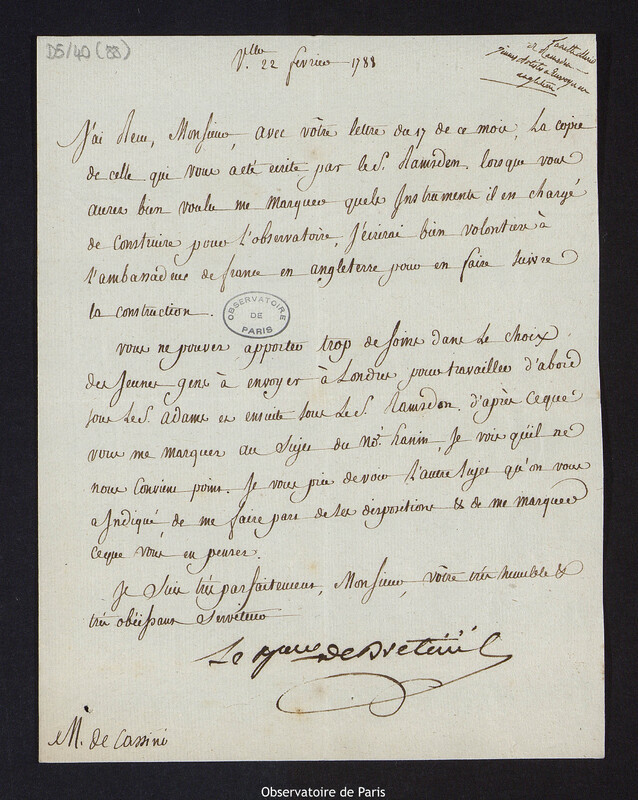 D5/40 (88)
V.lle 22 février 1788
J'ai Reçu, Monsieur, avec vôtre lettre du 17 de ce mois, La copie
de celle qui vous a eté ecrite par le S. Ramsden. lorsque vous
aurez bien voulu me Marquer quels Instrumens il est chargé
de Construire pour L'observatoire, J'écrirai bien volontiers à
L'ambassadeur de france en angleterre pour en faire suivre
la construction.
OBSERVATOIRE DE PARIS
vous ne pouvez apporter trop de soins dans Le choix
des Jeunes gens à envoyer à Londres pour travailler d'abord
sous Le S. adams et ensuite sous Le S. Ramsden. d'après ceque
vous me marquez au Sujet du No.é hanin, Je vois qu'il ne
nous Convient point. Je vous prie de voir L'autre Sujet qu'on vous
a Indiqué, de me faire part de ses dispositions & de me marquer
ceque vous en pensez.
Je Suis très parfaitement, Monsieur, vôtre très humble &
très obéissant Serviteur
Le Bon de Breteuil
M. de Cassini
Observatoire de Paris